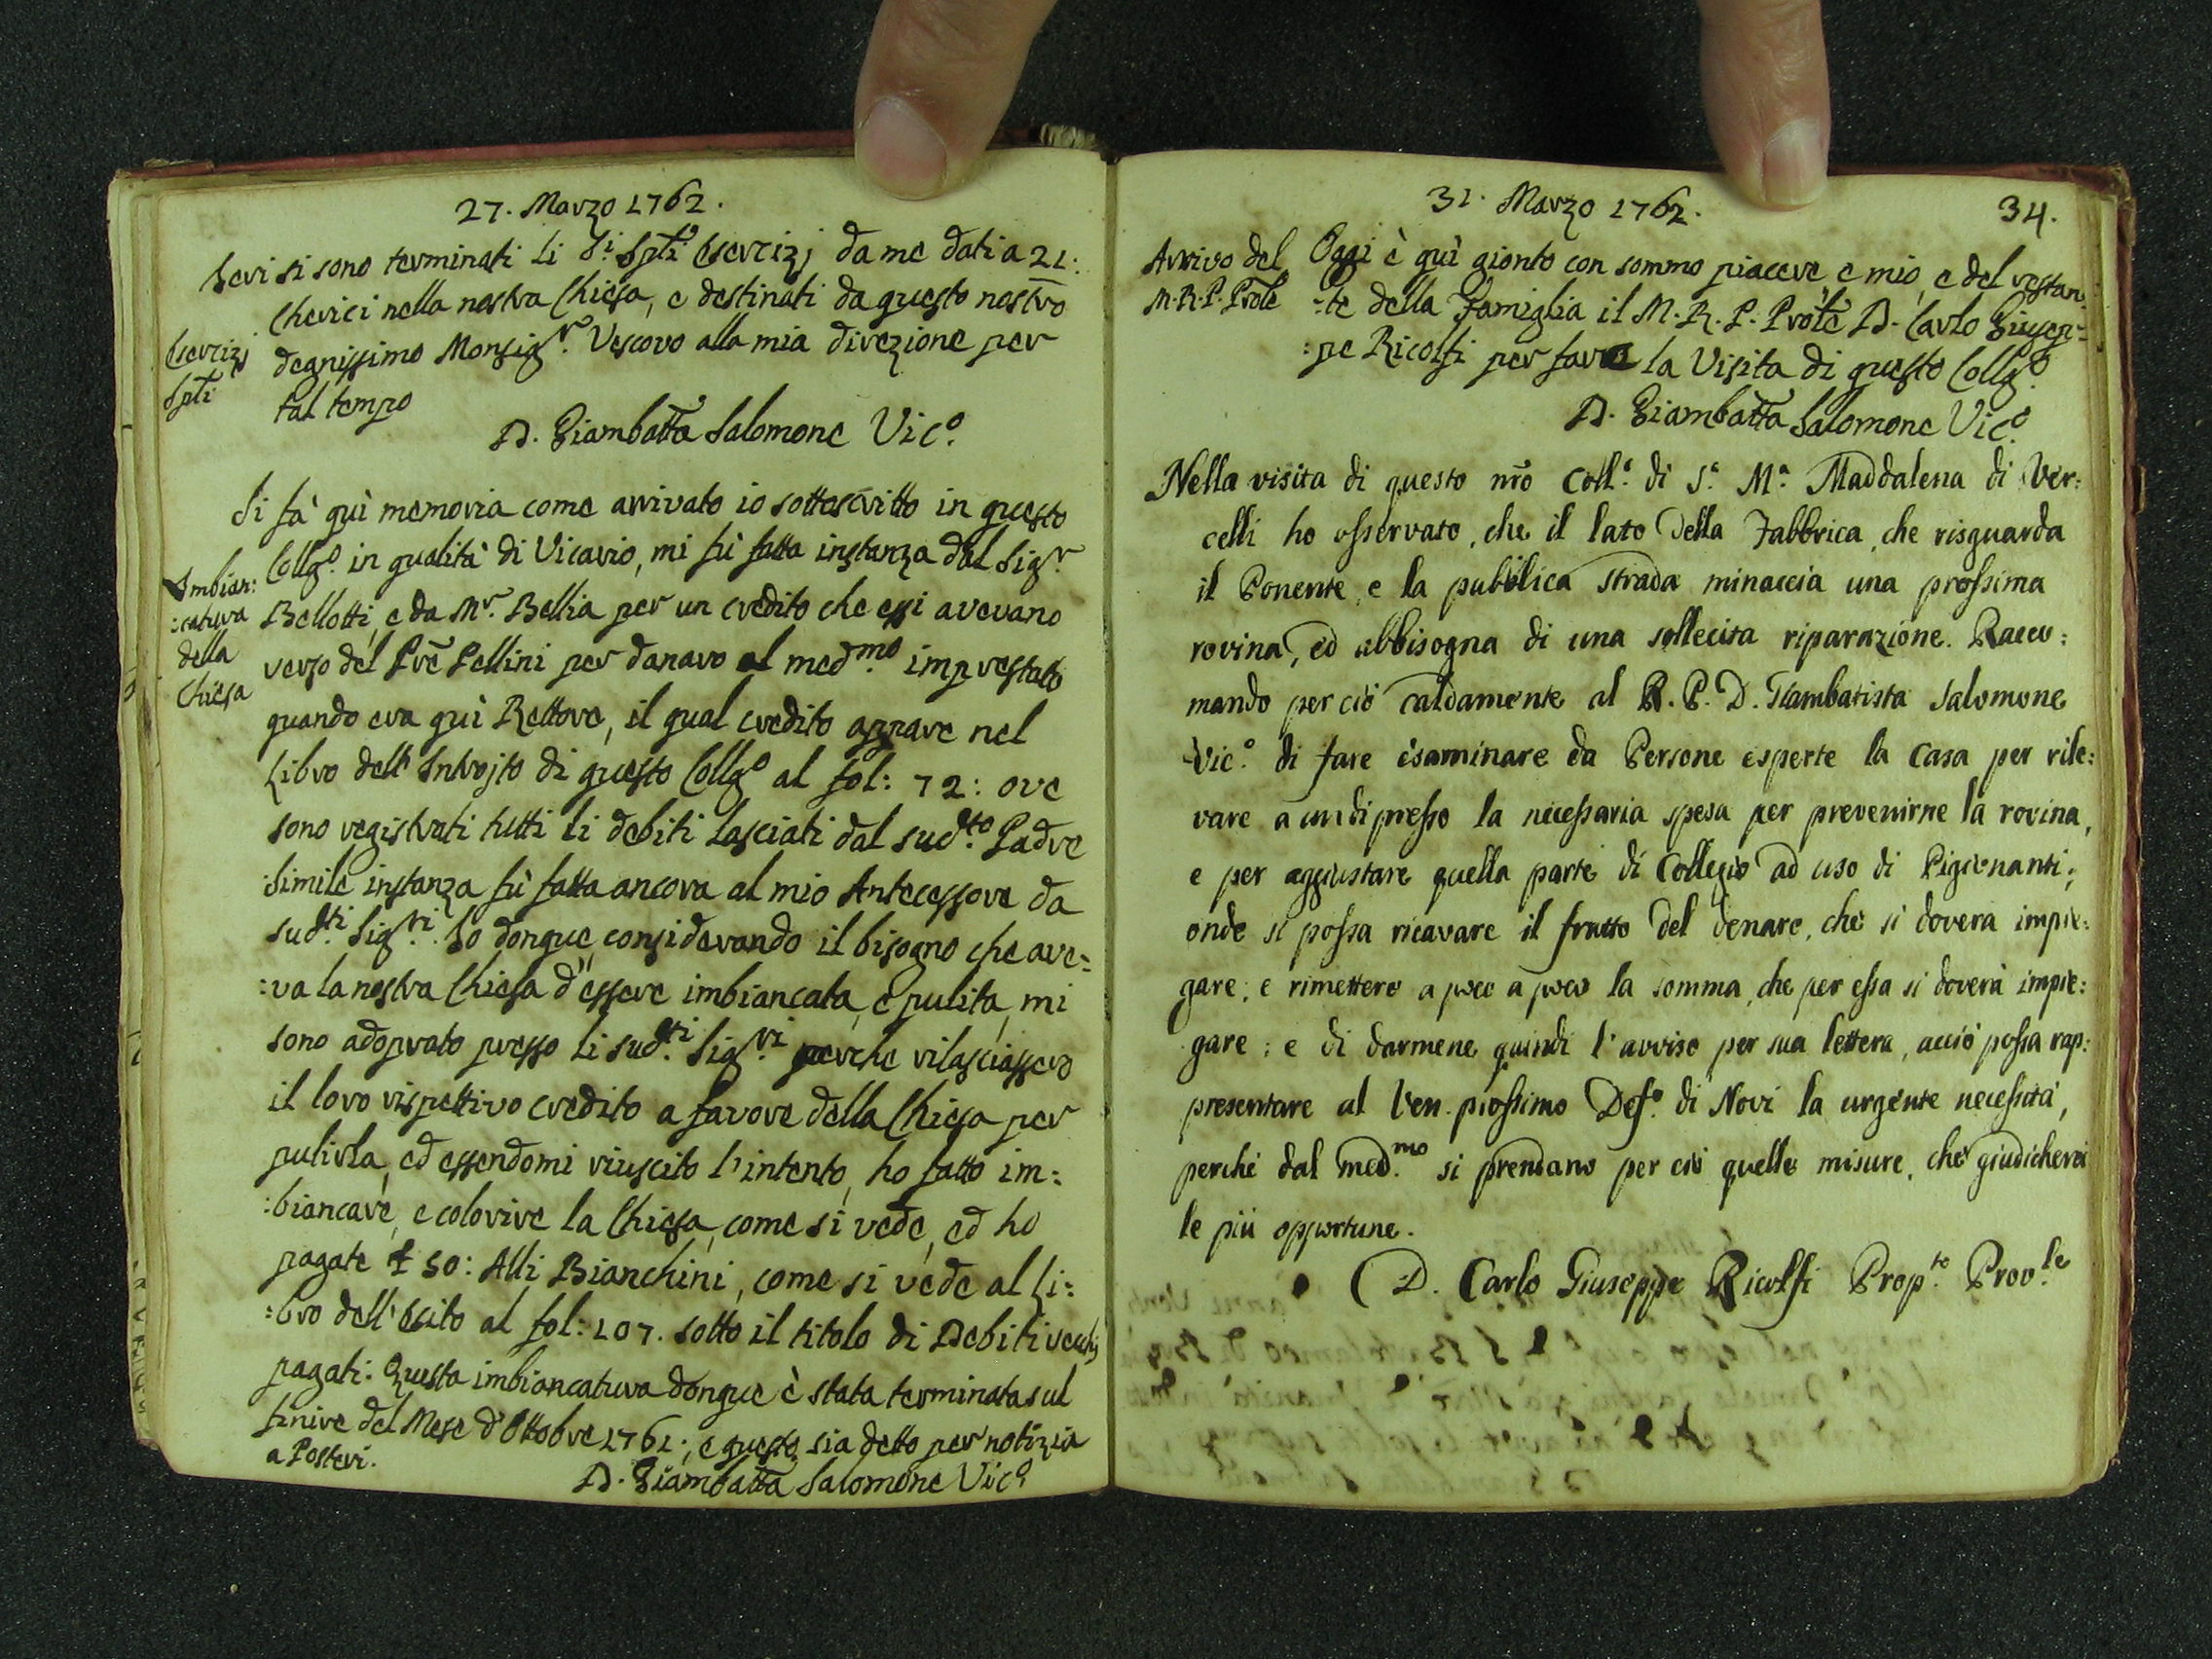 27. Marzo 1762.
Ieri si sono terminati li S.i Spli Esercizj da me dati a 21:
Cherici nella nostra Chiesa, e destinati da questo nostro
Esercizj
Spli
degnissimo Monsig.r Vescovo alla mia direzione per
tal tempo
D. Giambatta Salomone Vic.o
Si fà quì memoria come arrivato io sottoscritto in questo
Collg.o in qualità di Vicario, mi fù fatta instanza dal Sig.r
Imbian:
:catura
della
Chiesa
Bellotti, e da Mr. Bellia per un credito che essi avevano
verso del Pre Pellini per danaro al med.mo imprestato
quando era quì Rettore, il qual credito appare nel
Libro dell'Introjto di questo Collg.o al fol: 72: ove
sono registrati tutti li debiti lasciati dal sud.to Padre
Simile instanza fù fatta ancora al mio Antecessore da
sud.ti Sig.ri. Io donque, considerando il bisogno che ave=
:va la nostra Chiesa d'essere imbiancata, e pulita, mi
sono adoprato presso li sud.ti Sig.ri perche rilasciassero
il loro rispettivo credito a favore della Chiesa per
pulirla, ed essendomi riuscito l'intento, ho fatto im=
:biancare, e colorire la Chiesa, come si vede, ed ho
pagate £ 50: Alli Bianchini, come si vede al Li=
:bro dell'Esito al fol: 107. sotto il titolo di Debiti vecchj
pagati: Questa imbiancatura donque è stata terminata sul
finire del Mese d'Ottobre 1761:, e questo sia detto per notizia
a Posteri.
D. Giambatta Salomone Vic.o
31. Marzo 1762.
34.
Arrivo del
M. R. P. Prole
Oggi è quì gionto con sommo piacere, e mio, e del restan
-te della Famiglia il M. R. P. Prole D. Carlo Giusep=
:pe Ricolfi per fare la Visita di questo Collg.o
D. Giambatta Salomone Vic.o
Nella visita di questo nro Coll.o di S.a M.a Maddalena di Ver:
celli ho osservato, che il lato della Fabbrica, che risguarda
il Ponente, e la pubblica strada minaccia una prossima
rovina, ed abbisogna di una sollecita riparazione. Racco:
mando per ciò caldamente al R. P. D. Giambatista Salomone
Vic.o di fare esaminare da Persone esperte la Casa per rile:
vare a un di presso la necessaria spesa per prevenirne la rovina,
e per aggiustare quella parte di Collegio ad uso di Pigionanti;
onde si possa ricavare il frutto del denaro, che si doverà impie:
gare, e rimettere a poco a poco la somma, che per essa si doverà impie:
gare; e di darmene quindi l'avviso per sua lettera, acciò possa rap:
presentare al Ven. prossimo Def.o di Novi la urgente necessità,
perchè dal med.mo si prendano per ciò quelle misure, che giudicherà
le più opportune.
D. Carlo Giuseppe Ricolfi Prop.to Prov.le